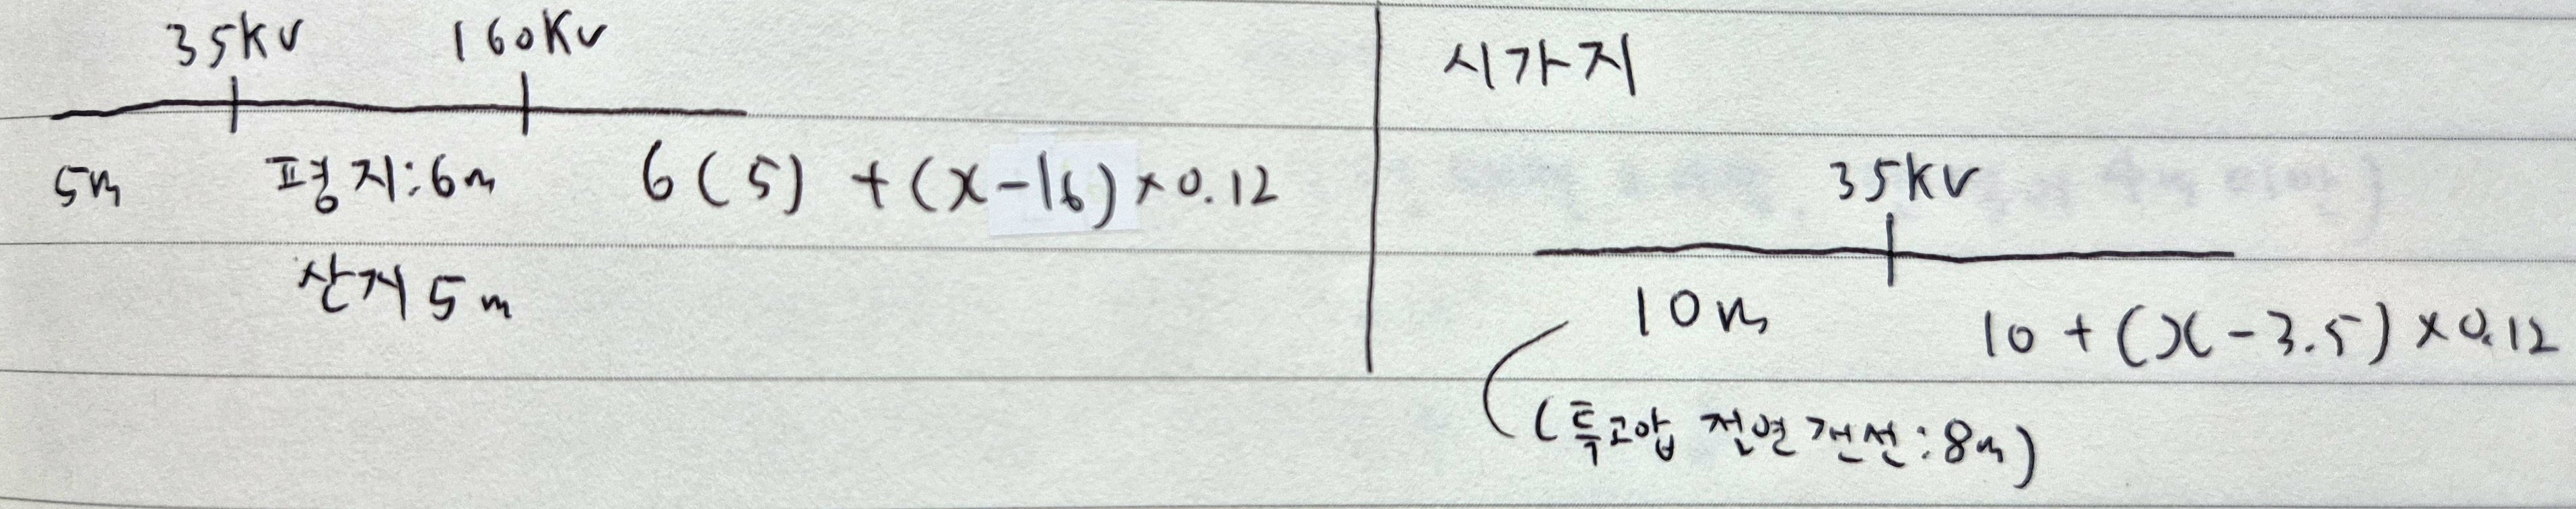 35KV 160KV
5m 평지:6m 6(5) +(x-16)×0.12
산지 5m
시가지
35KV
10m 10+(x-3.5)×0.12
(특고압 절연전선:8m)